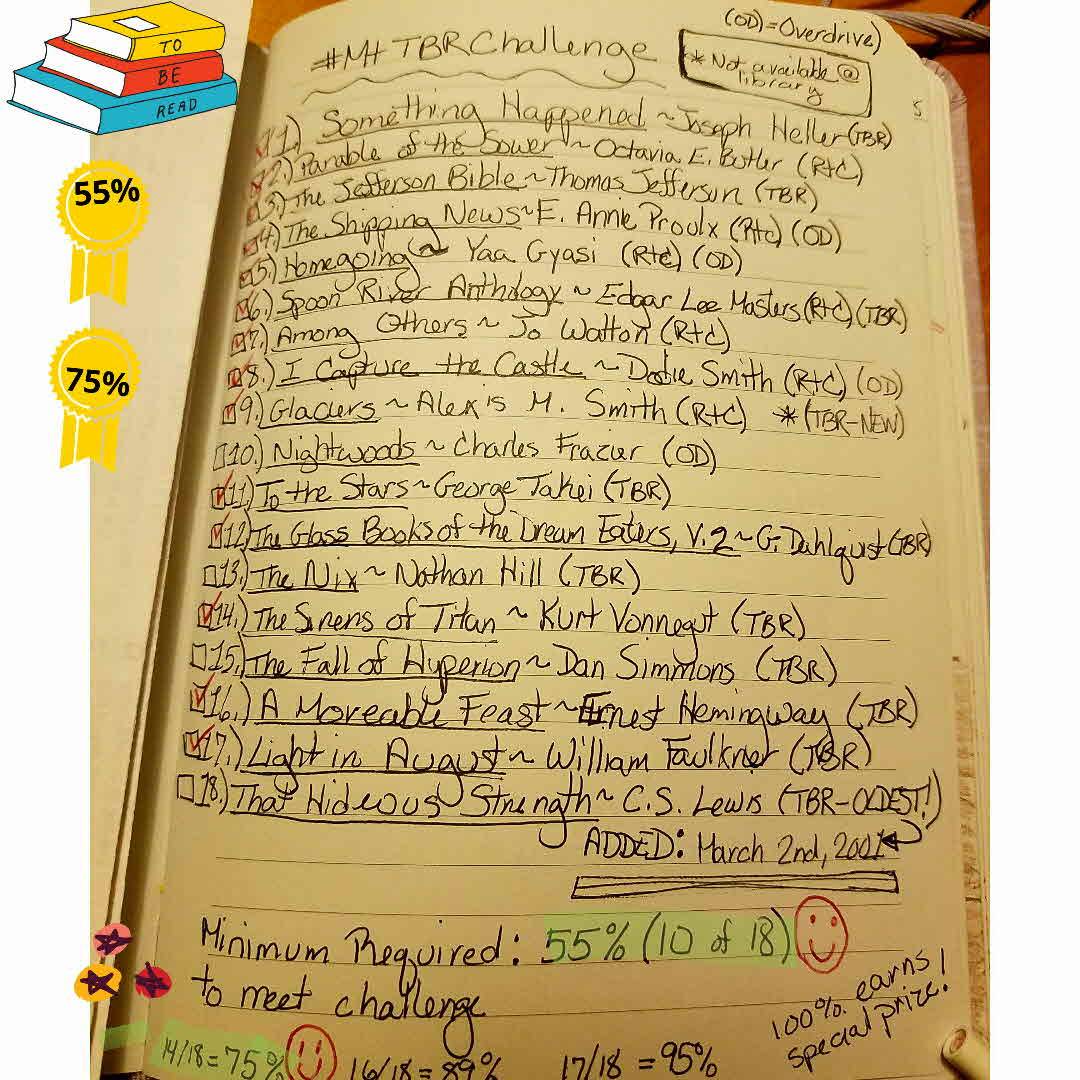 TO
BE
READ
55%
75%
(OD)=Overdrive)
#Mt TBR Challenge
* Not available @
library
5
1.) Something Happened ~ Joseph Heller (TBR)
2.) Parable of the Sower ~ Octavia E. Butler (R+C)
3.) The Jefferson Bible ~ Thomas Jefferson (TBR)
4.) The Shipping News ~ E. Annie Proulx (R+C) (OD)
5.) Homegoing ~ Yaa Gyasi (R+C) (OD)
6.) Spoon River Anthology ~ Edgar Lee Masters (R+C) (TBR)
7.) Among Others ~ Jo Walton (R+C)
8.) I Capture the Castle ~ Dodie Smith (R+C) (OD)
9.) Glaciers ~ Alexis M. Smith (R+C) * (TBR-NEW)
10.) Nightwoods ~ Charles Frazier (OD)
11.) To the Stars ~ George Takei (TBR)
12.) The Glass Books of the Dream Eaters, V.2 ~ G. Dahlquist (TBR)
13.) The Nix ~ Nathan Hill (TBR)
14.) The Sirens of Titan ~ Kurt Vonnegut (TBR)
15.) The Fall of Hyperion ~ Dan Simmons (TBR)
16.) A Moveable Feast ~ Ernest Hemingway (TBR)
17.) Light in August ~ William Faulkner (TBR)
18.) That Hideous Strength ~ C.S. Lewis (TBR-OLDEST!)
ADDED: March 2nd, 2001
Minimum Required: 55% (10 of 18)
to meet challenge
100% earns
special prize!
14/18=75%
16/18=89%
17/18=95%